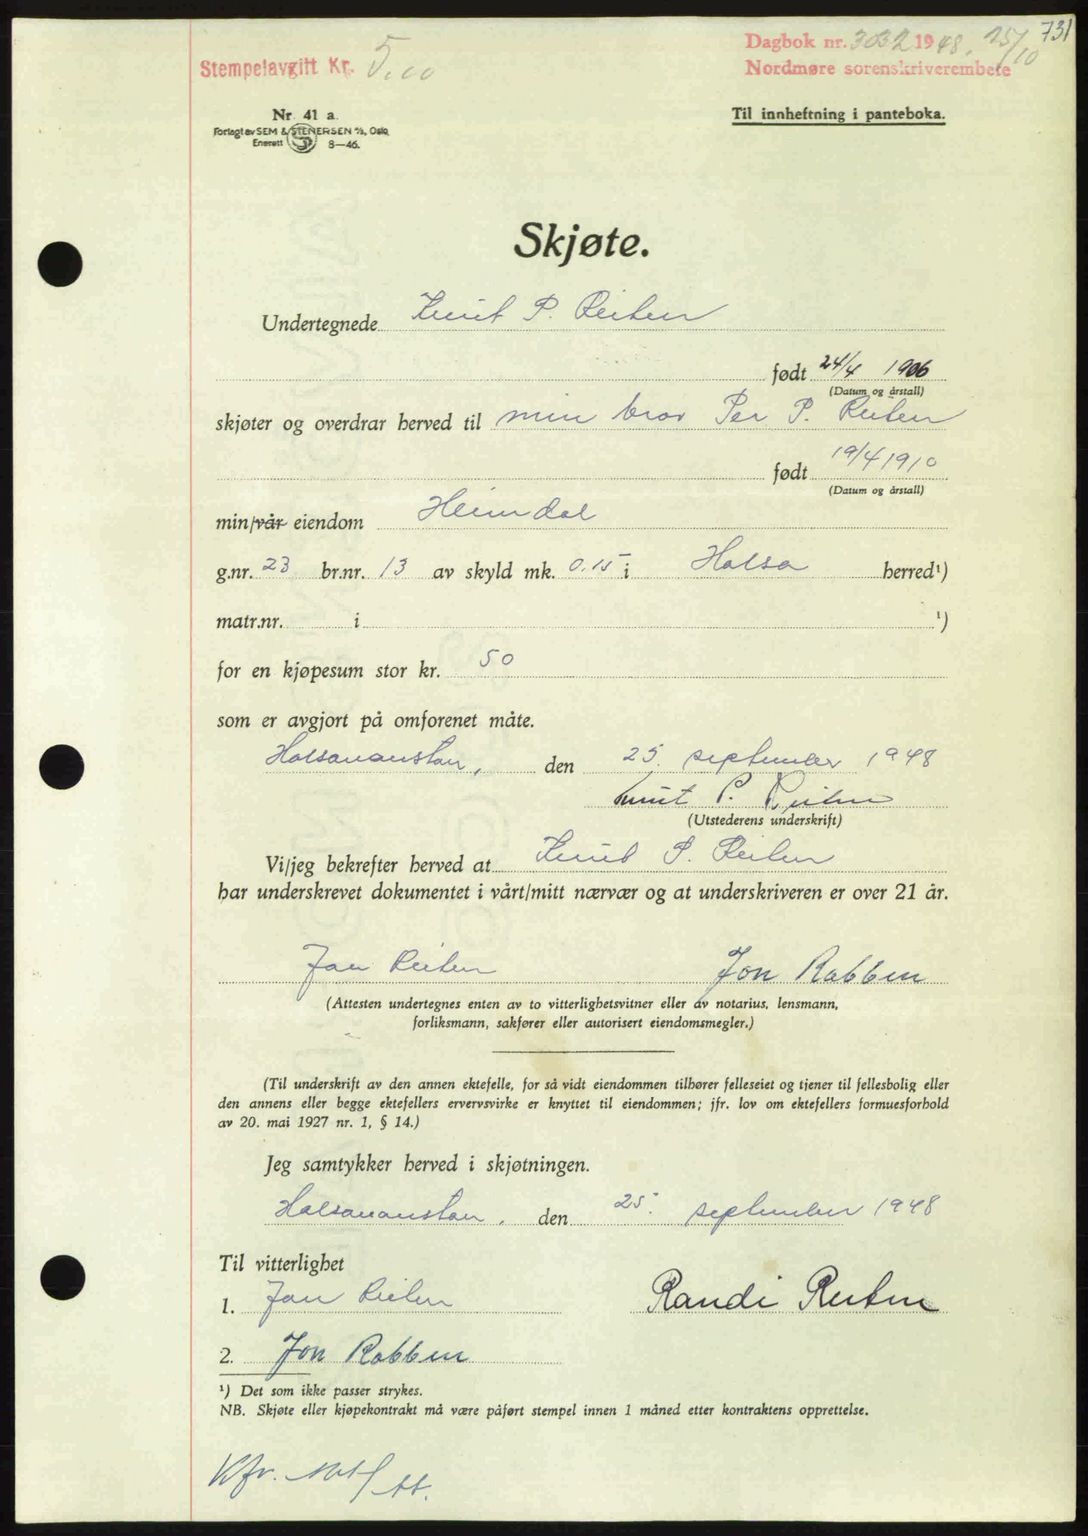 731
Stempelavgift Kr. 5,00
Dagbok nr. 3032 1948. 15/10
Nordmøre sorenskriverembete
Nr. 41 a.
Forlagt av SEM & STENERSEN A/S, Oslo
Enerett 8—46.
Til innheftning i panteboka.
Skjøte.
Undertegnede Knut P. Reiten
født 24/4 1906
(Datum og årstall)
skjøter og overdrar herved til min bror Per P. Reiten
født 19/4 1910
(Datum og årstall)
min/vår eiendom Heimdal
g.nr. 23 br.nr. 13 av skyld mk. 0.15 i Halsa herred¹)
matr.nr. i ¹)
for en kjøpesum stor kr. 50
som er avgjort på omforenet måte.
Halsanaustan, den 25. september 1948
Knut P. Reiten
(Utstederens underskrift)
Vi/jeg bekrefter herved at Knut P. Reiten
har underskrevet dokumentet i vårt/mitt nærvær og at underskriveren er over 21 år.
Jan Reiten Jon Rabben
(Attesten undertegnes enten av to vitterlighetsvitner eller av notarius, lensmann,
forliksmann, sakfører eller autorisert eiendomsmegler.)
(Til underskrift av den annen ektefelle, for så vidt eiendommen tilhører felleseiet og tjener til fellesbolig eller
den annens eller begge ektefellers ervervsvirke er knyttet til eiendommen; jfr. lov om ektefellers formuesforhold
av 20. mai 1927 nr. 1, § 14.)
Jeg samtykker herved i skjøtningen.
Halsanaustan, den 25. september 1948
Til vitterlighet
1. Jan Reiten Randi Reiten
2. Jon Rabben
¹) Det som ikke passer strykes.
NB. Skjøte eller kjøpekontrakt må være påført stempel innen 1 måned etter kontraktens opprettelse.
Kfr.